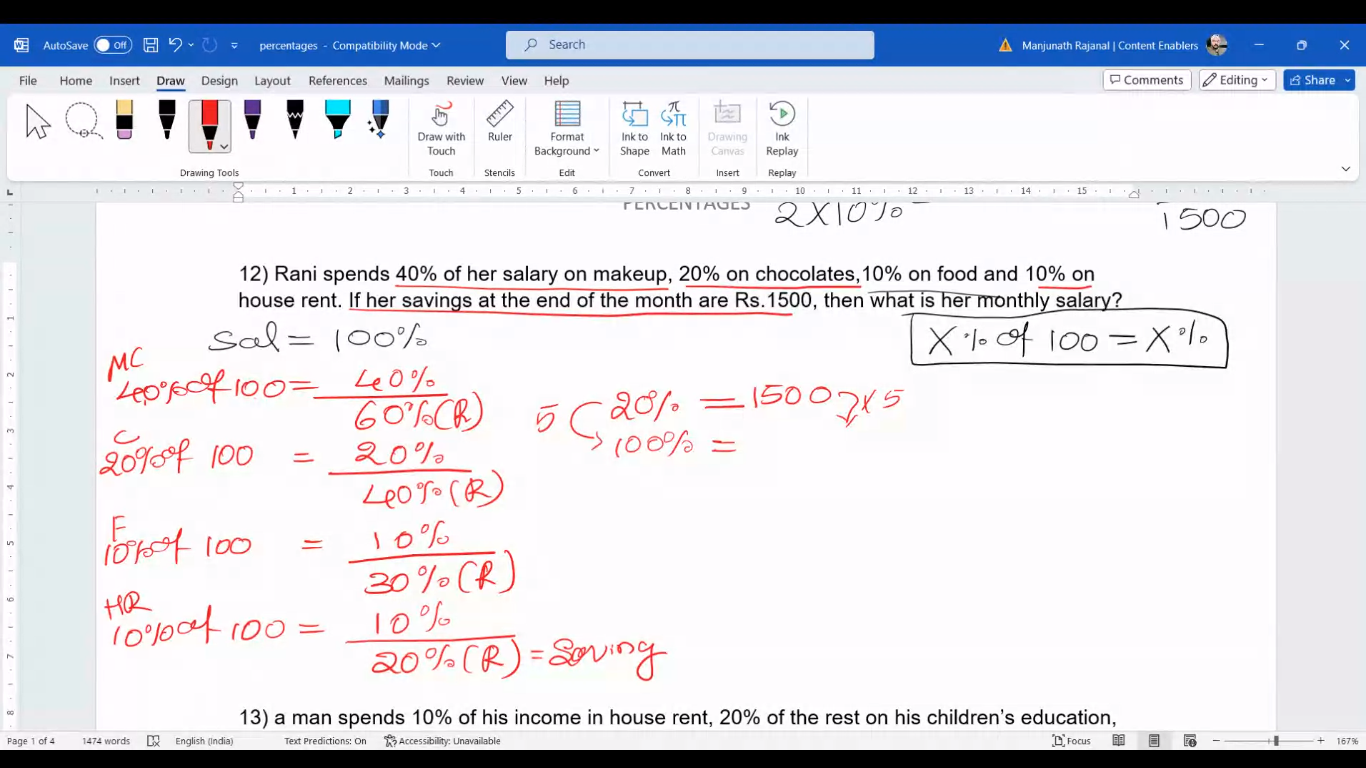 AutoSave Off percentages - Compatibility Mode Search Manjunath Rajanal | Content Enablers
File Home Insert Draw Design Layout References Mailings Review View Help Comments Editing Share
Draw with Touch Ruler Format Background Ink to Shape Ink to Math Drawing Canvas Ink Replay
Touch Stencils Edit Convert Insert Replay
1 2 3 4 5 6 7 8 9 10 11 12 13 14 15
PERCENTAGES
2 X 10% =
1500
12) Rani spends 40% of her salary on makeup, 20% on chocolates,10% on food and 10% on
house rent. If her savings at the end of the month are Rs.1500, then what is her monthly salary?
Sal = 100%
X% of 100 = X%
MC
40% of 100 = 40%
60% (R)
C
20% of 100 = 20%
40% (R)
F
10% of 100 = 10%
30% (R)
HR
10% of 100 = 10%
20% (R) = Saving
5 20% = 1500 x 5
100% =
13) a man spends 10% of his income in house rent, 20% of the rest on his children's education,
1 2 3 4 5 6 7 8
Page 1 of 4 1474 words English (India) Text Predictions: On Accessibility: Unavailable Focus 167%